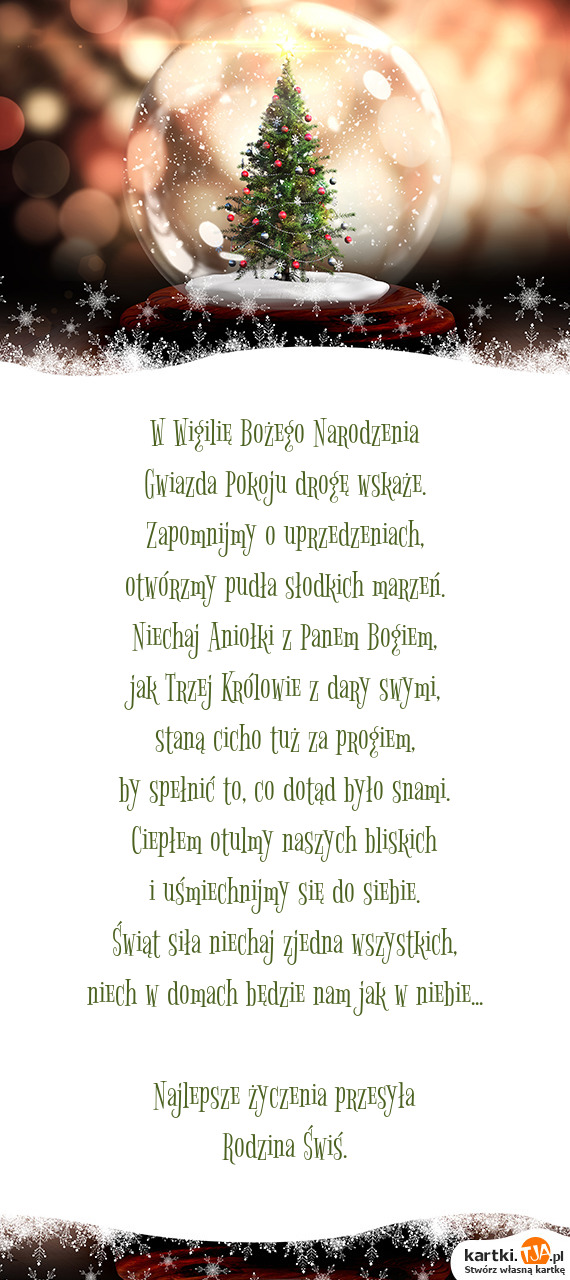 W Wigilię Bożego Narodzenia
Gwiazda Pokoju drogę wskaże.
Zapomnijmy o uprzedzeniach,
otwórzmy pudła słodkich marzeń.
Niechaj Aniołki z Panem Bogiem,
jak Trzej Królowie z dary swymi,
staną cicho tuż za progiem,
by spełnić to, co dotąd było snami.
Ciepłem otulmy naszych bliskich
i uśmiechnijmy się do siebie.
Świąt siła niechaj zjedna wszystkich,
niech w domach będzie nam jak w niebie...
Najlepsze życzenia przesyła
Rodzina Świś.
kartki.TJA.pl
Stwórz własną kartkę